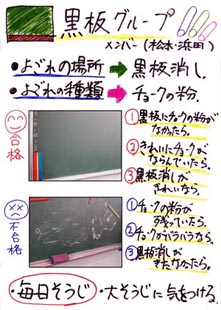 黒板グループ
メンバー(松本・浜田)
・よごれの場所 ➡ 黒板消し.
・よごれの種類 ➡ チョークの粉.
合格
①黒板にチョークの粉が
なかったら。
②きれいにチョークが
ならんでいたら。
③黒板消しが
きれいなら。
不合格
①チョークの粉が
残っていたら。
②チョークがバラバラなら。
③黒板消しが
きたなかったら。
・毎日そうじ ・大そうじに気をつける。